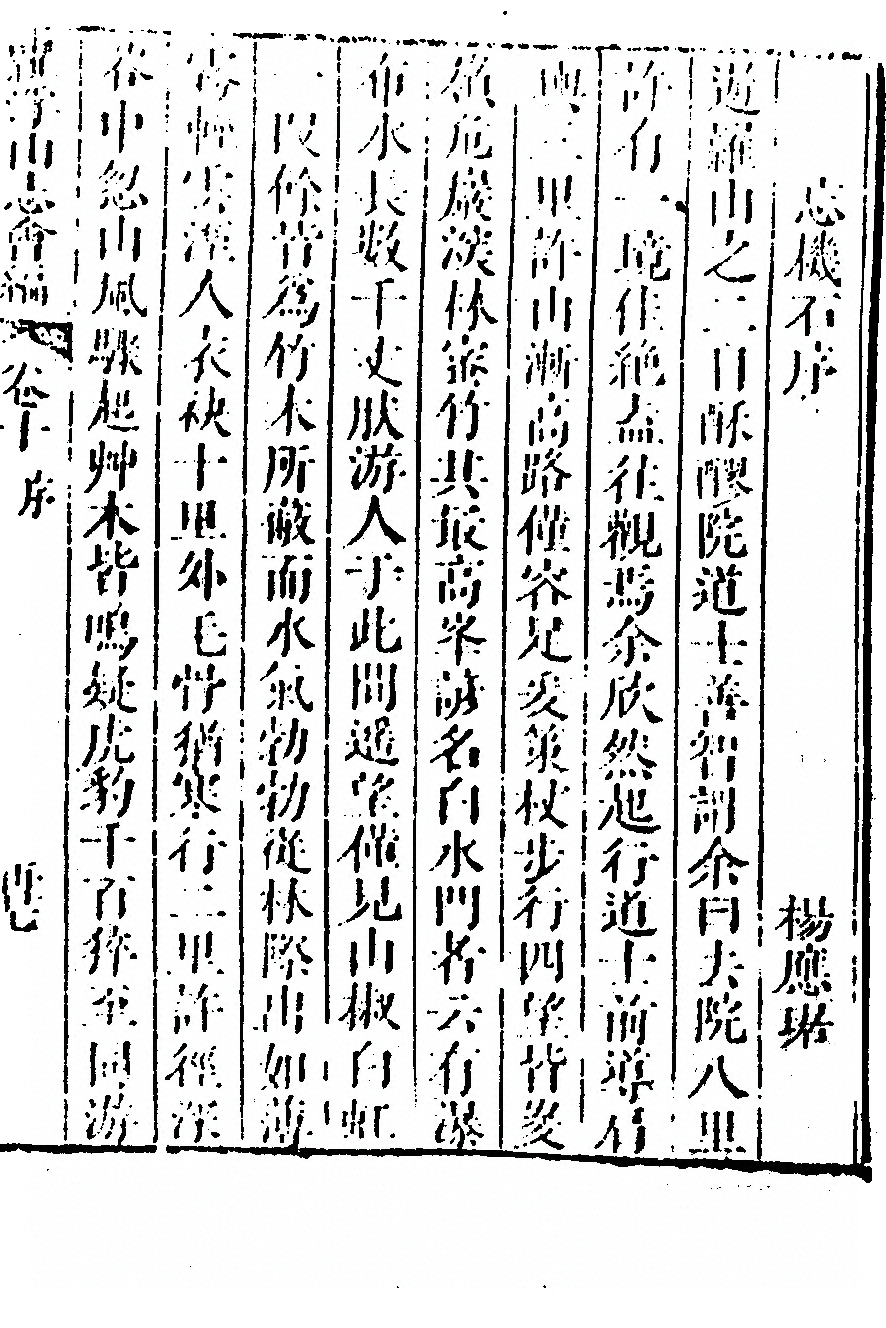 忘機石序
楊應琚
遊羅山之二日酥醪院道士善智謂余曰去院八里
許有一境佳絶盍往觀焉余欣然起行道士前導肩
輿二里許山漸高路僅容足爰策杖步行四望皆夋
嶺危巖淡林密竹其最高峯諺名白水門者云有瀑
布水長數千丈肰游人于此間遥望僅見山椒白虹
一段餘皆爲竹木所蔽而水氣勃勃從林際出如薄
霧輕雲溼人衣袂十里外毛骨猶寒行二里許徑深
谷中忽山風驟起艸木皆鳴疑虎豹千百猝至同游
浮山志會編
卷十
序